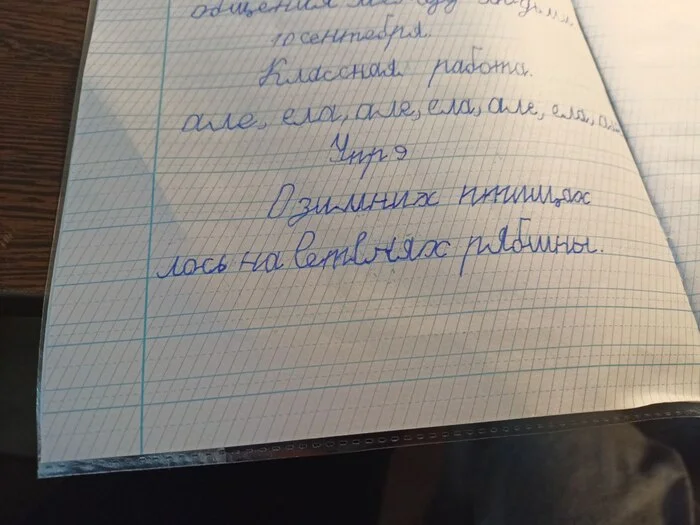 общения между людьми
10 сентября.
Классная работа.
але, ела, але, ела, але, ела, але
Упр 9
О зимних птицах
лось на ветвях рябины.